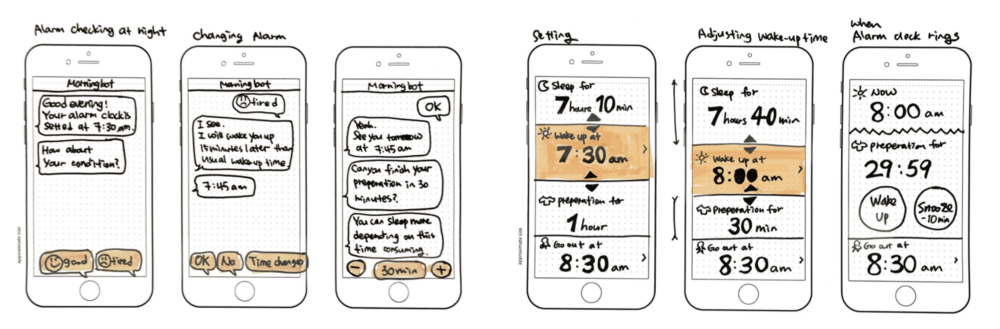 Alarm checking at night
Morningbot
Good evening!
Your alarm clock is
setted at 7:30 am.
How about
Your condition?
good
tired
approximate size
Changing Alarm
Morningbot
tired
I see.
I will wake you up
15 minutes later than
usual wake-up time.
7:45 am
OK
No
Time change
Morningbot
OK
Yeah.
See you tomorrow
at 7:45 am
Can you finish your
preperation in 30
minutes?
You can sleep more
depending on this
time consuming.
−
30 min
+
Setting
Sleep for
7 hours 10 min
Wake up at
7:30 am
preperation for
1 hour
Go out at
8:30 am
approximate size
Adjusting Wake-up time
Sleep for
7 hours 40 min
Wake up at
8:00 am
Preperation for
30 min
Go out at
8:30 am
when
Alarm clock rings
Now
8:00 am
preparation for
29:59
Wake
Up
Snooze
-10min
Go out at
8:30 am